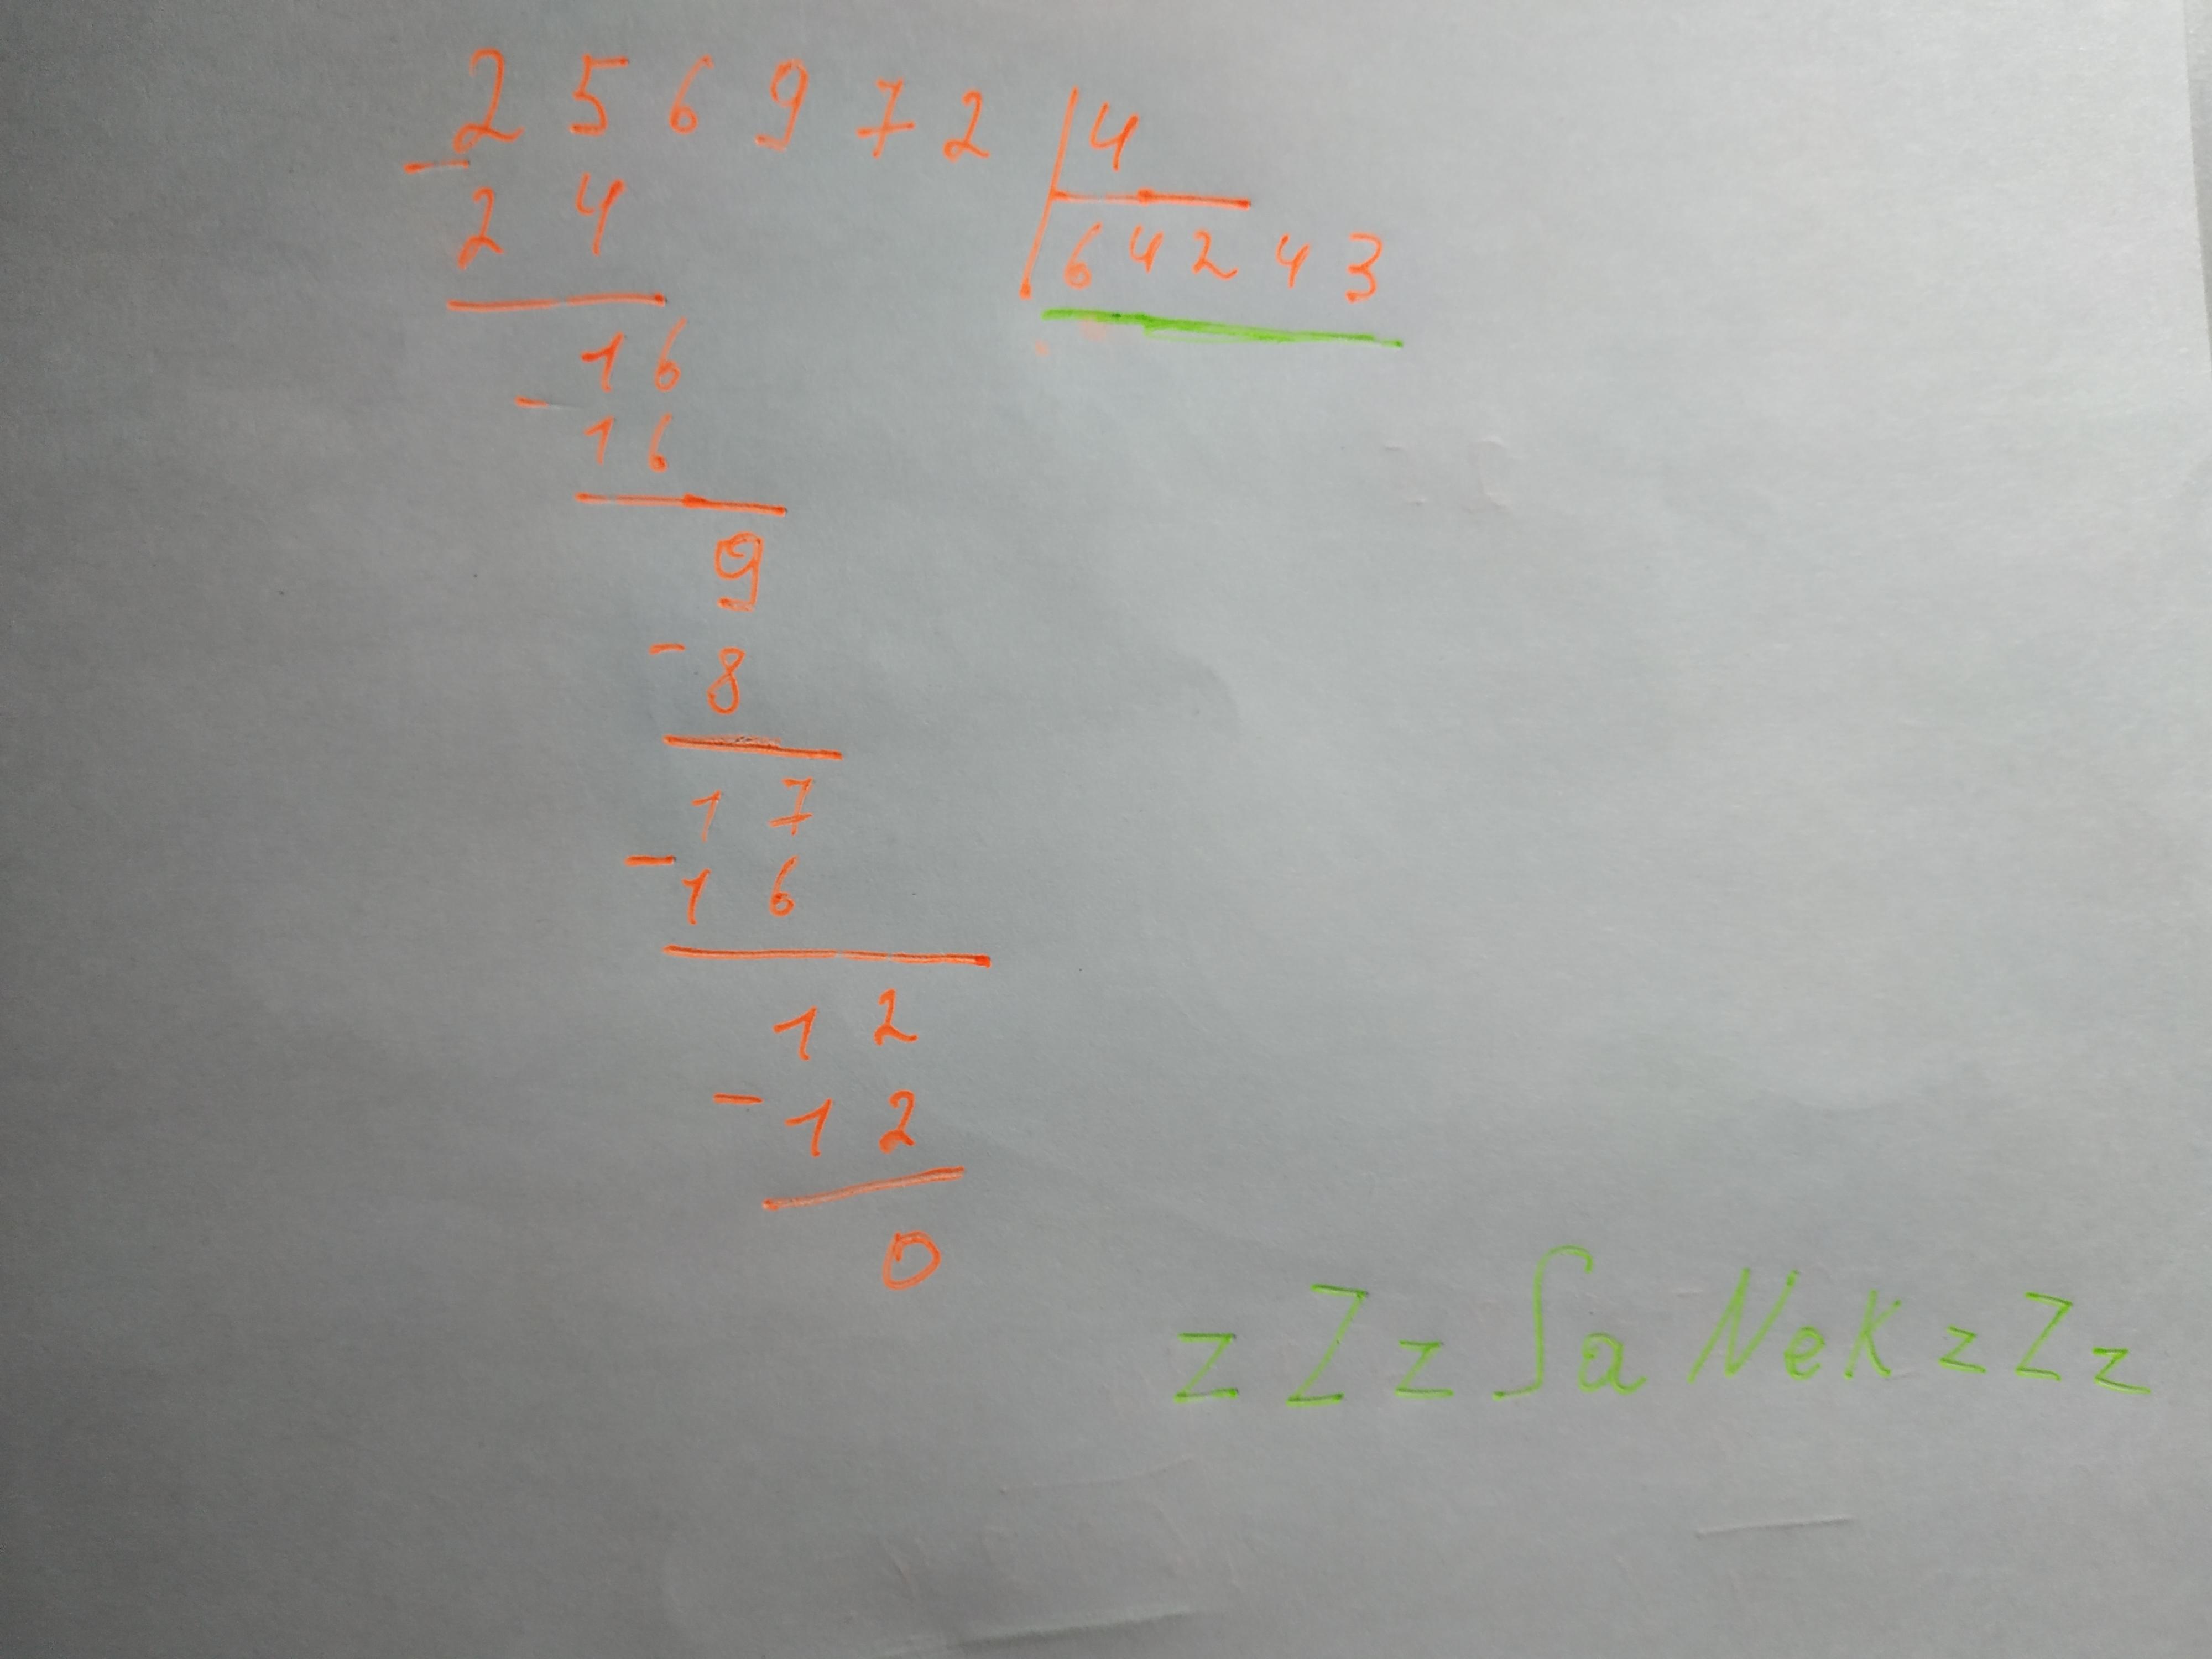 2 5 6 9 7 2 | 4
- 2 4
6 4 2 4 3
1 6
- 1 6
9
- 8
1 7
- 1 6
1 2
- 1 2
0
zZzSaNeKzZz